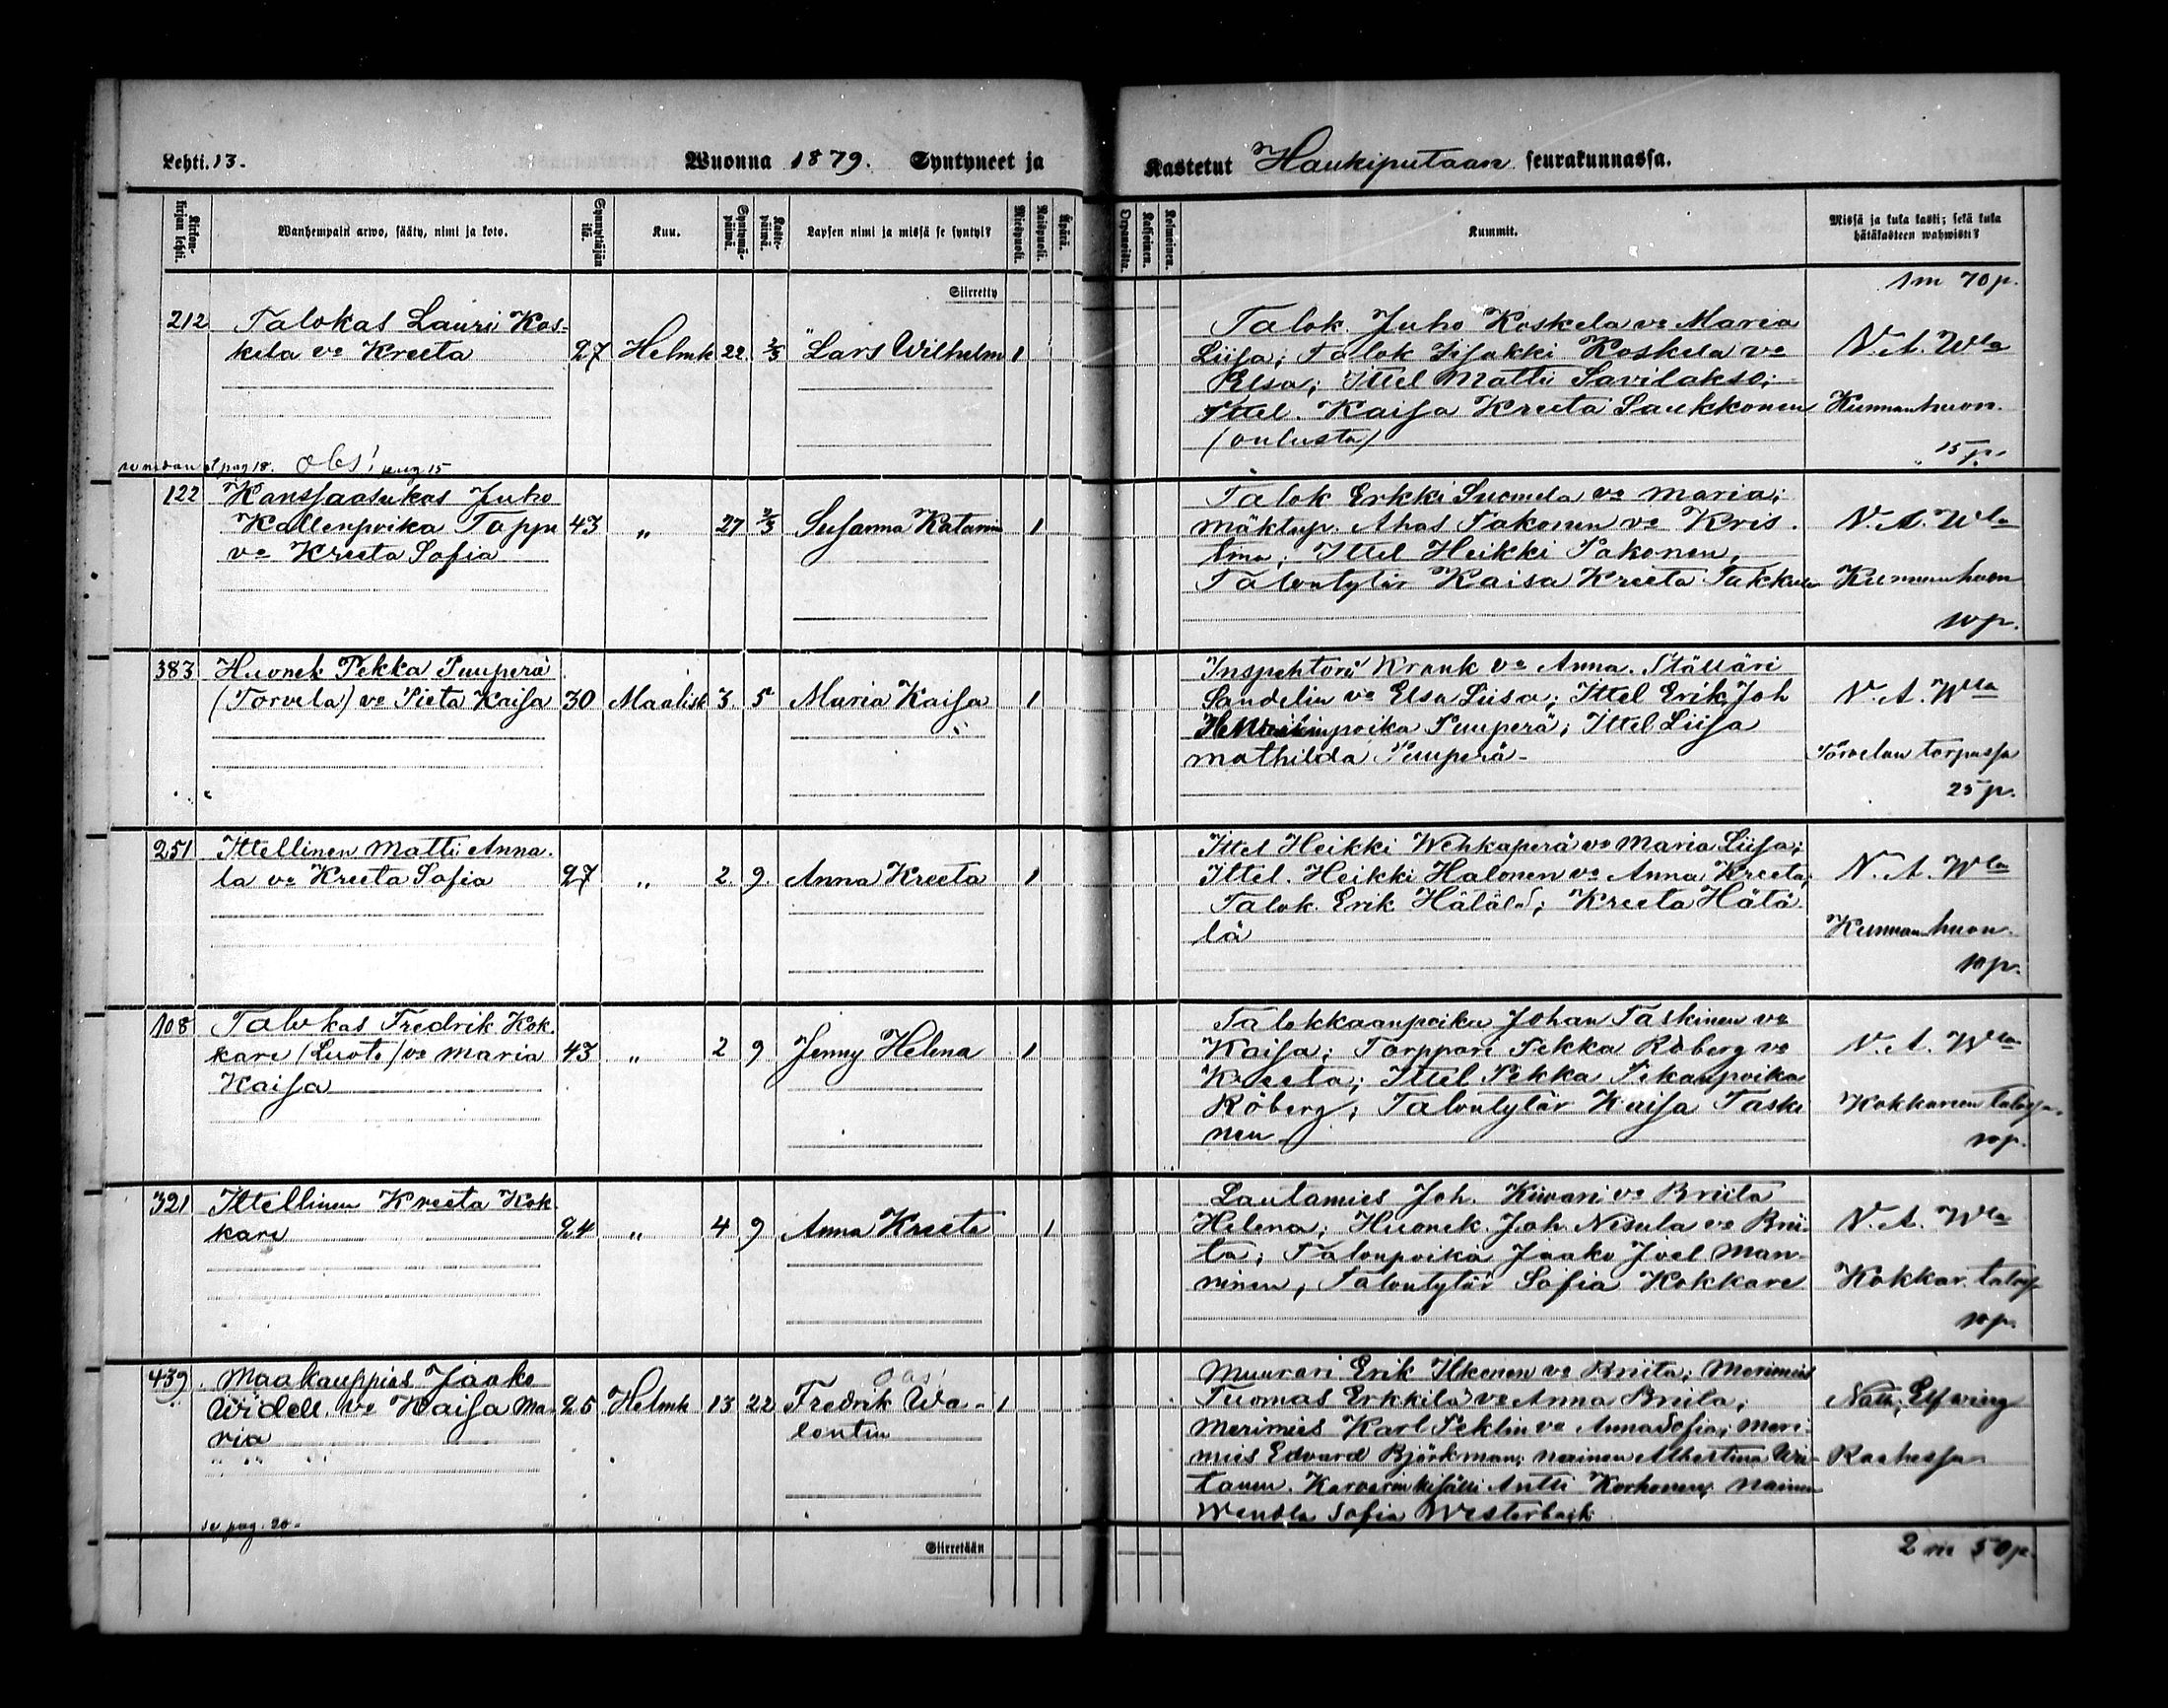 Lehti. 13.
Wuonna 1879. Syntyneet ja
Kastetut Haukiputaan seurakunnassa.
Kirkonkirjan lehti.
Wanhempain arwo, sääty, nimi ja koto.
Synnyttäjän ikä.
Kuu.
Syntymäpäiwä.
Kastepäiwä.
Lapsen nimi ja missä se syntyi?
Miespuoli.
Naispuoli.
Äpärä.
Orpanoista.
Kaksoinen.
Kolmoinen.
Kummit.
Missä ja kuka kasti; sekä kuka
hätäkasteen wahwisti?
Siirretty
1 m 70 p.
212 Talokas Lauri Kos-
kela vo Kreeta 27 Helmk 22. 2/3 Lars Wilhelm 1
Talok. Juho Koskela vo Maria
Liisa; Talok Iisakki Koskela vo
Elsa; Ittel Matti Savilakso;
Ittel. Kaisa Kreeta Saukkonen
(oulusta)
N. A. Wla
Kunnanhuon.
15 p.
pag 18. obs! pag 15
122 Kanssaasukas Juho
Kallenpoika Tappu
vo Kreeta Sofia 43 " 27 2/3 Susanna Katarina 1
Talok Erkki Suomela vo Maria;
Mäktup. Ahas Pakonen vo Kris
tina; Ittel Heikki Pakonen,
Talontytär Kaisa Kreeta Takkula
N. A. Wla
Kunnanhuon
10 p.
383 Huonek Pekka Puuperä
(Torvela) vo Pieta Kaisa 30 Maalisk 3. 5 Maria Kaisa 1
Inspehtori Krank vo Anna. Ställäri
Sandelin vo Elsa Liisa; Ittel Erik Joh
Puuperä; Ittel Liisa
Mathilda Puuperä-
N. A. Wla
Törvelan torpassa
25 p.
251 Ittellinen Matti Anna-
la vo Kreeta Sofia 27 " 2. 9. Anna Kreeta 1
Ittel Heikki Wehkaperä vo Maria Liisa;
Ittel. Heikki Halonen vo Anna Kreeta;
Talok. Erik Hätälä; Kreeta Hätä
lä
N. A. Wla
Kunnanhuon.
10 p.
108 Talokas Fredrik Kok-
kare (Luoto) vo Maria
Kaisa 43 " 2 9 Jenny Helena 1
Talokkaanpoika Johan Taskinen vo
Kaisa; Torppari Pekka Röberg vo
Kreeta; Ittel Pekka Pekanpoika
Röberg; Talontytär Kaisa Taski
nen
N. A. Wla
Kokkareen talossa.
10 p.
321 Ittellinen Kreeta Kok-
kare 24 " 4 9 Anna Kreeta 1
Lautamies Joh. Kiwari vo Briita
Helena; Huonek. Joh. Nisula vo Brii-
ta; Talonpoika Jaako Joel Man-
ninen, Talontytär Sofia Kokkare
N. A. Wla
Kokkar. talos
10 p.
439. Maakauppias Jaako
Widell vo Kaisa Ma-
ria 25 Helmk 13 22 Fredrik Wa-
lentin 1
Muurari Erik Ilkonen vo Briita; Merimies
Tuomas Erkkilä vo Anna Briita;
Merimies Karl Peklin vo Anna Sofia; Meri-
mies Edvard Björkman; nainen Albertina
Karvarinkisälli Antti Korhonen; nainen
Wendla Sofia Westerback
Nath. Elfwing
Raahessa
se pag. 20.
Siirretään
2 m 50 p.